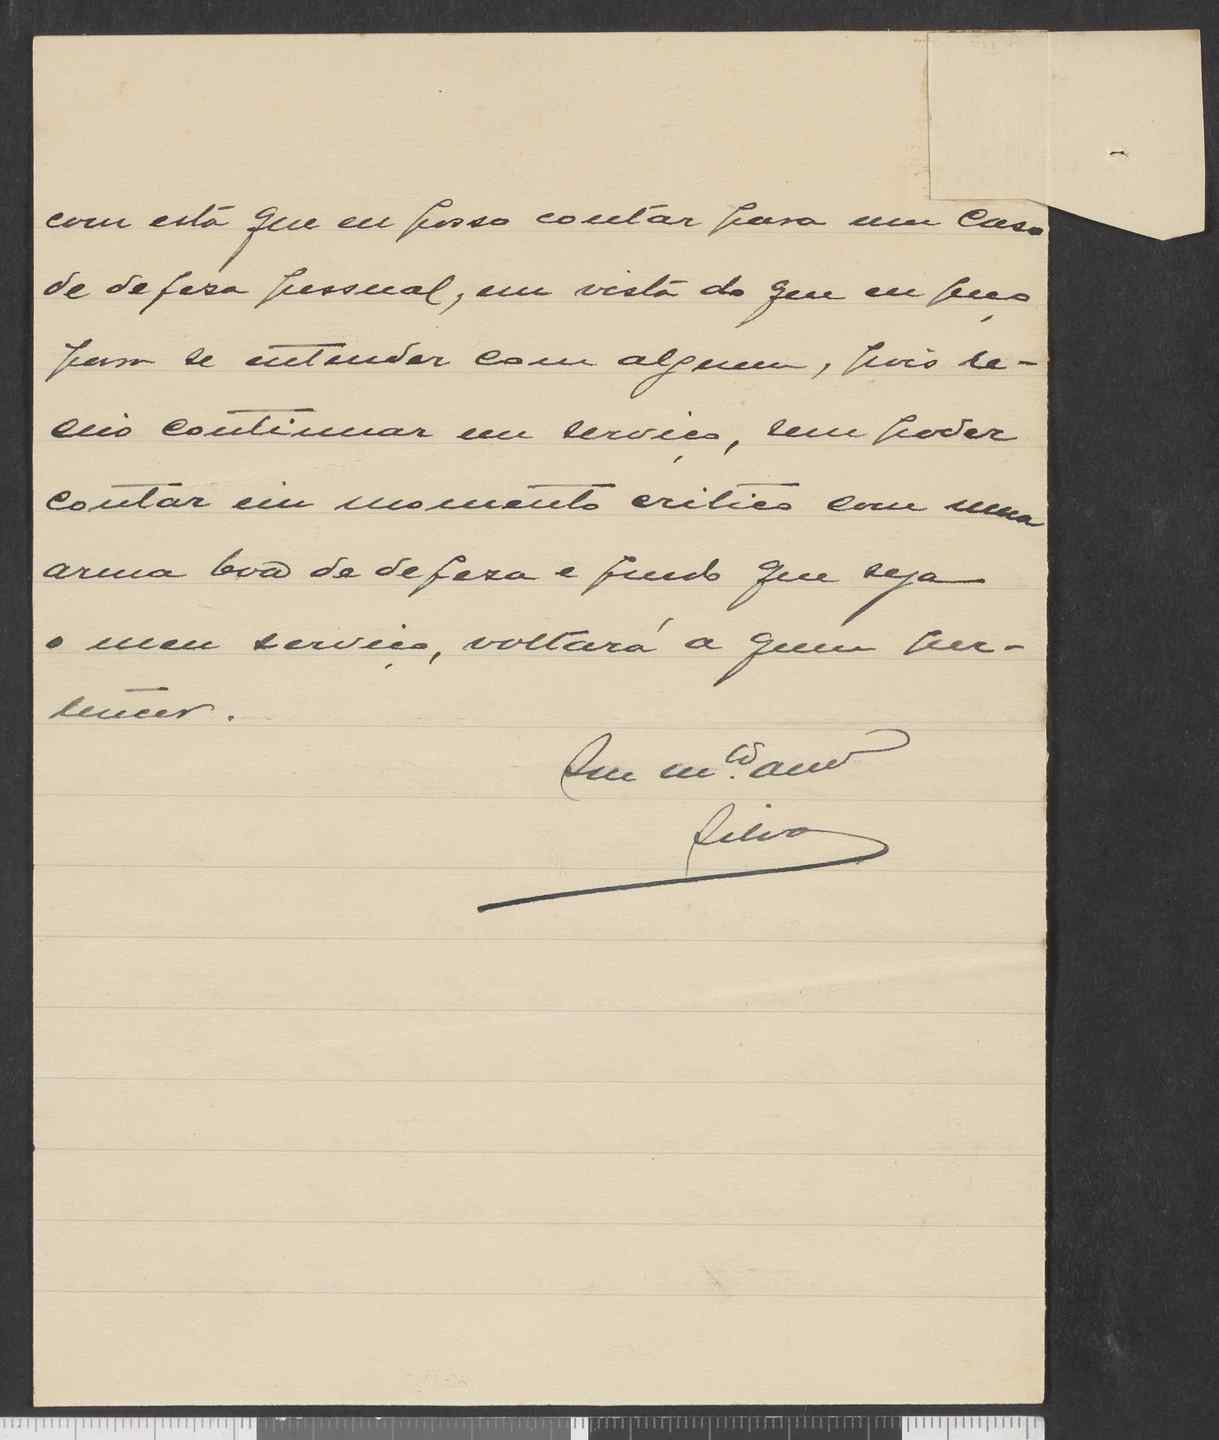 com está que eu posso contar para um caso
de defeza pessoal, em vista do que eu peço
para se entender com alguem, pois re-
ceio continuar em serviço, sem poder
contar em momento critico com uma
arma boa de defeza e findo que seja
o meu serviço, voltará a quem per-
tencer.
Seu m.to amo
Silva